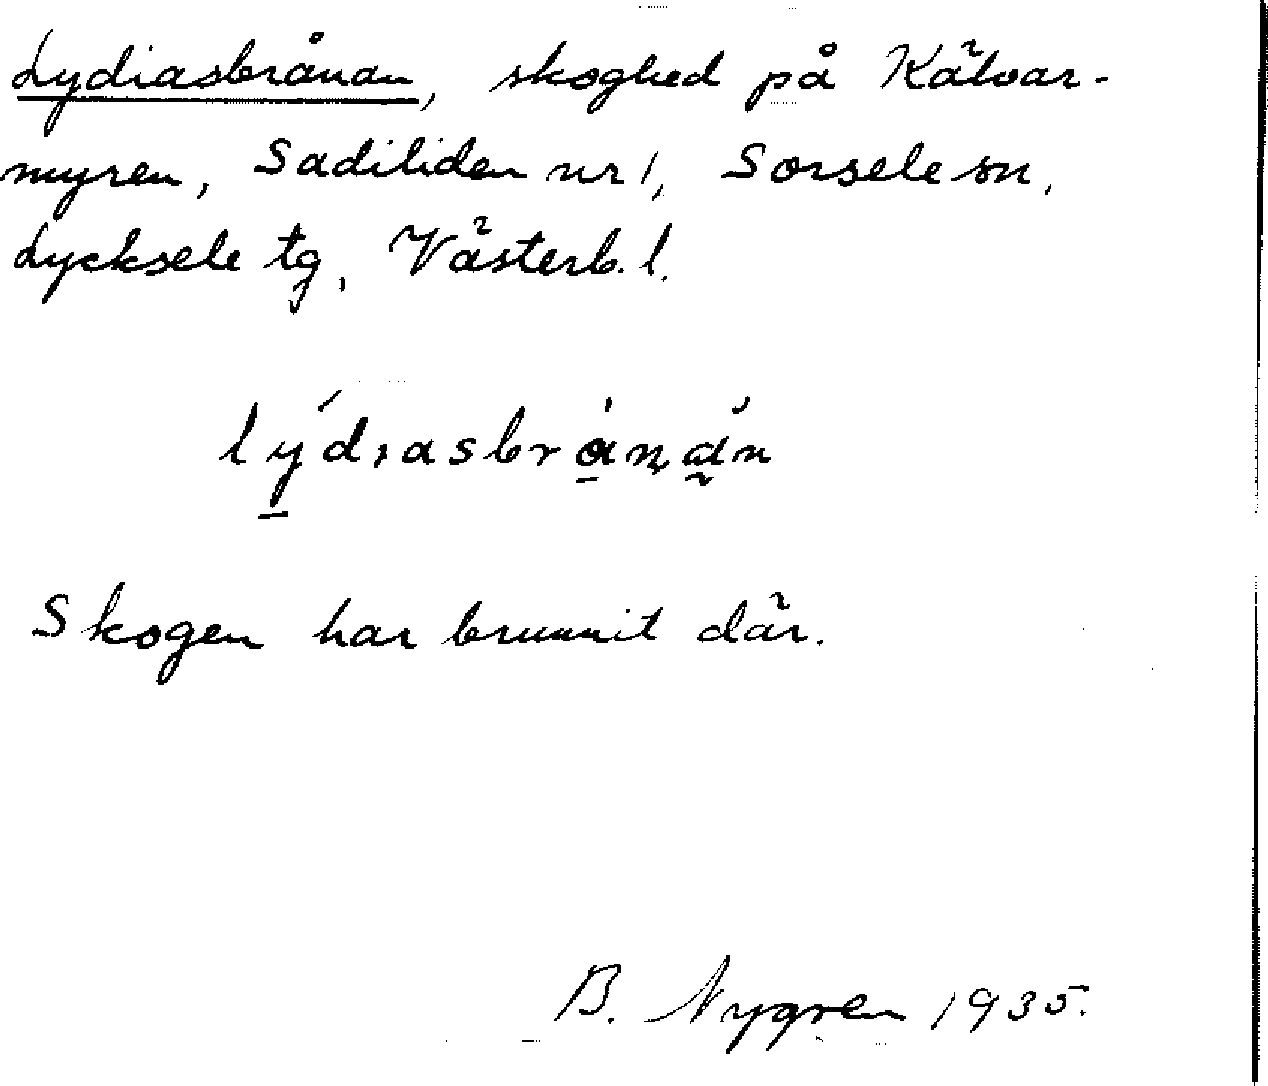 Lydiasbrånan, skoghed på Kälvar-
myren, Sadiliden nr 1, Sorsele sn,
Lycksele tg, Västerb. l.
lydiasbrånan
Skogen har brunnit där.
B. Nygren 1935.